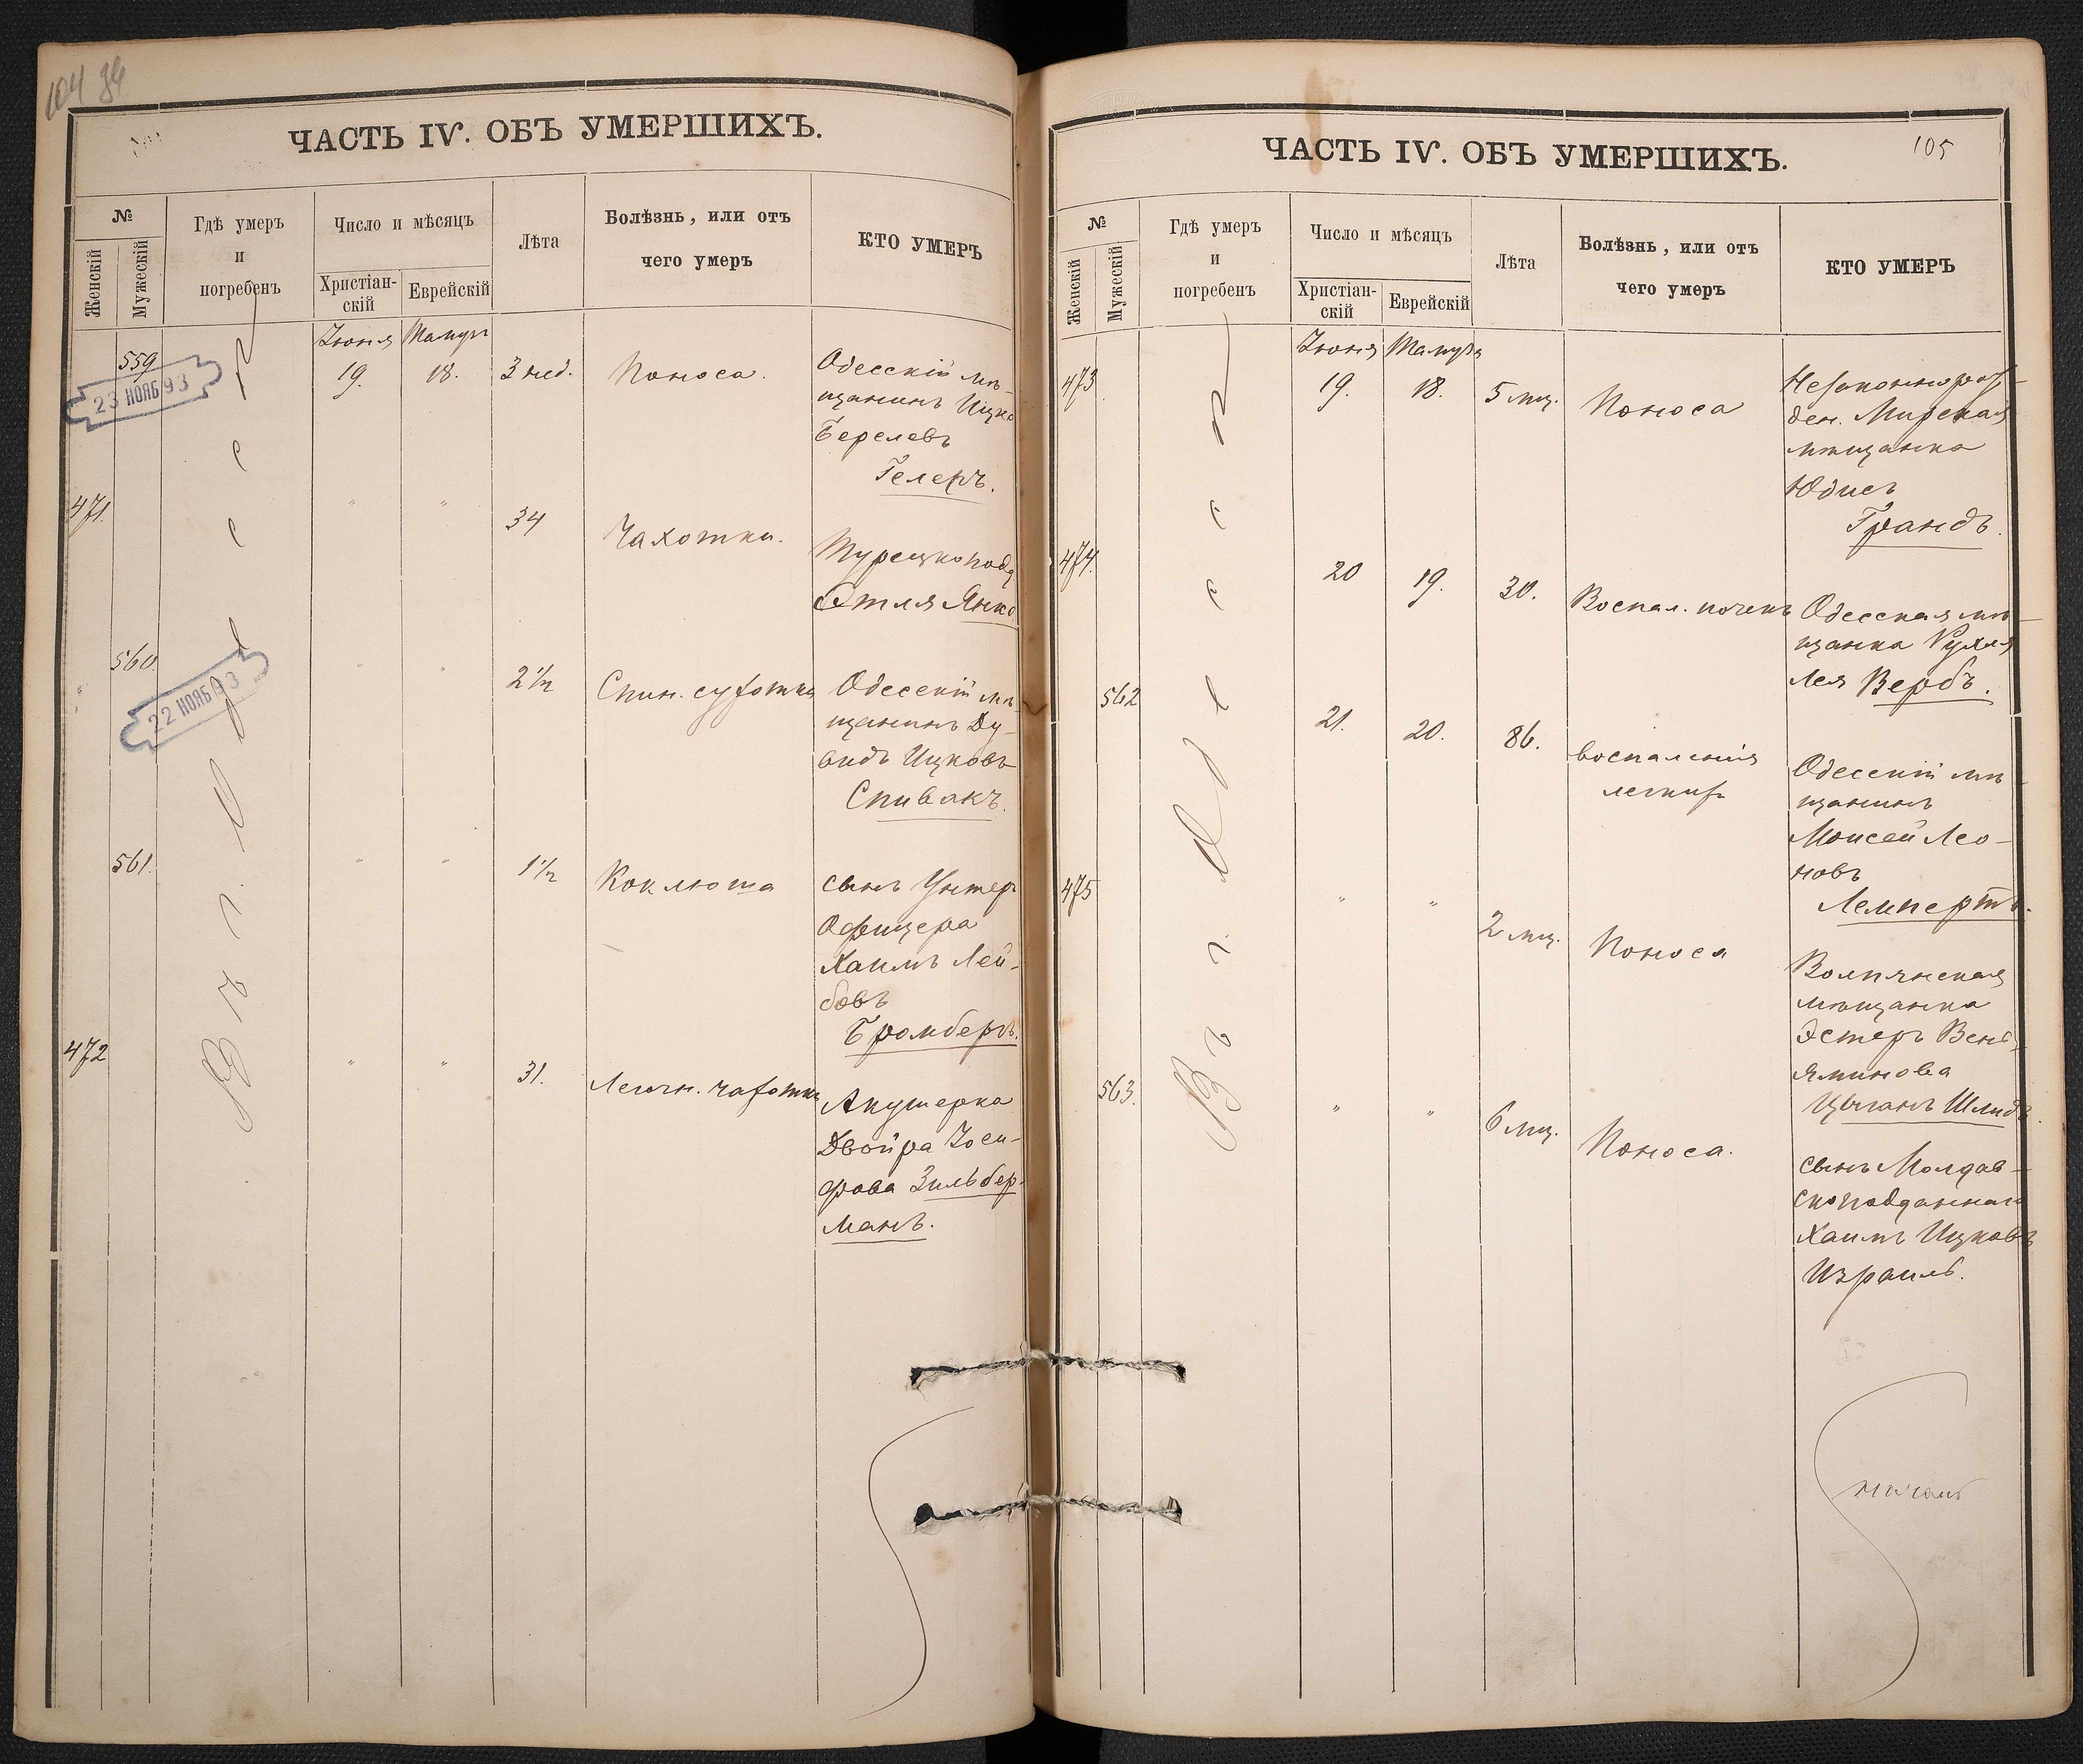 104 34
ЧАСТЬ IV. ОБЪ УМЕРШИХЪ.
№
Женскій
Мужескій
Гдѣ умеръ
и
погребенъ
Число и мѣсяцъ
Христіан-
скій
Еврейскій
Лѣта
Болѣзнь, или отъ
чего умеръ
КТО УМЕРЪ
Въ г. Одессѣ
Іюня Тамузъ
559
19. 18. 3 нед. Поноса.
Одесскій мѣ-
щанинъ Ицко
Берелевъ
Гелеръ.
23 НОЯБ 93
471. " " 34 Чахотки.
Турецкопод
Этля Янко
560 " " 2 1/2 Спин. сухотка
Одесскій мѣ-
щанинъ Ду-
видъ Ицковъ
Спивакъ.
22 НОЯБ 93
561. " " 1 1/2 Коклюша
сынъ Унтеръ
Офицера
Хаимъ Лей-
бовъ
Бромберъ.
472 " " 31. Легочн. чахотка
Акушерка
Двойра Іоси-
фова Зильбер-
манъ.
105
ЧАСТЬ IV. ОБЪ УМЕРШИХЪ.
№
Женскій
Мужескій
Гдѣ умеръ
и
погребенъ
Число и мѣсяцъ
Христіан-
скій
Еврейскій
Лѣта
Болѣзнь, или отъ
чего умеръ
КТО УМЕРЪ
Въ г. Одессѣ
Іюня Тамузъ
473 19. 18. 5 мц. Поноса
Незаконнорож-
ден. Мирская
мѣщанка
Юдись
Грандъ.
474. 20 19. 30. Воспал. почекъ
Одесская мѣ-
щанка Рухля
Лея Вербъ.
562 21. 20. 86. воспаленія
легкихъ
Одесскій мѣ-
щанинъ
Моисей Лео-
новъ
Лемпертъ.
475 " " 2 мц. Поноса
Волпянская
мѣщанка
Эстеръ Вень-
яминова
Цыганъ Шмидъ.
563. " " 6 мц. Поноса.
сынъ Молдав-
скоподданнаго
Хаимъ Ицковъ
Израиль.